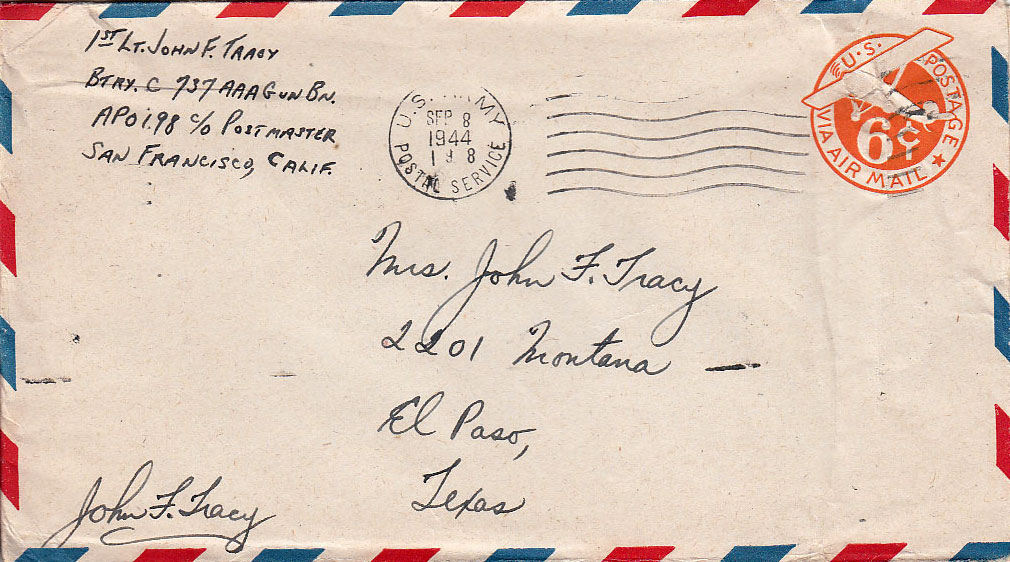 1ST LT. JOHN F. TRACY
BTRY. C 737 AAA GUN BN.
APO 198 c/o POSTMASTER
SAN FRANCISCO, CALIF.
U.S. ARMY
SEP 8
1944
POSTAL SERVICE
U.S. POSTAGE
6¢
VIA AIR MAIL
Mrs. John F. Tracy
2201 Montana
El Paso,
Texas
John F. Tracy